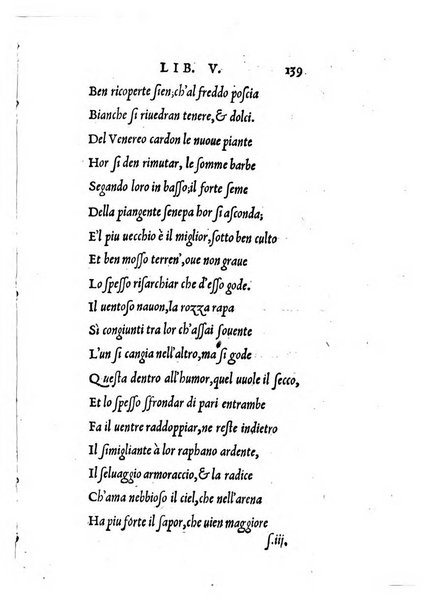 LIB. V. 139
Ben ricoperte ſien; ch'al freddo poſcia
Bianche ſi riuedran tenere, & dolci.
Del Venereo cardon le nuoue piante
Hor ſi den rimutar, le ſomme barbe
Segando loro in baſſo; il forte ſeme
Della piangente ſenepa hor ſi aſconda;
E'l piu uecchio è il miglior, ſotto ben culto
Et ben moſſo terren', oue non graue
Lo ſpeſſo riſarchiar che d'eſſo gode.
Il uentoſo nauon, la rozza rapa
Sì congiunti tra lor ch'aſſai ſouente
L'un ſi cangia nell'altro, ma ſi gode
Queſta dentro all'humor, quel uuole il ſecco,
Et lo ſpeſſo sfrondar di pari entrambe
Fa il uentre raddoppiar, ne reſte indietro
Il ſimigliante à lor raphano ardente,
Il ſeluaggio armoraccio, & la radice
Ch'ama nebbioſo il ciel, che nell'arena
Ha piu forte il ſapor, che uien maggiore
ſ.iij.